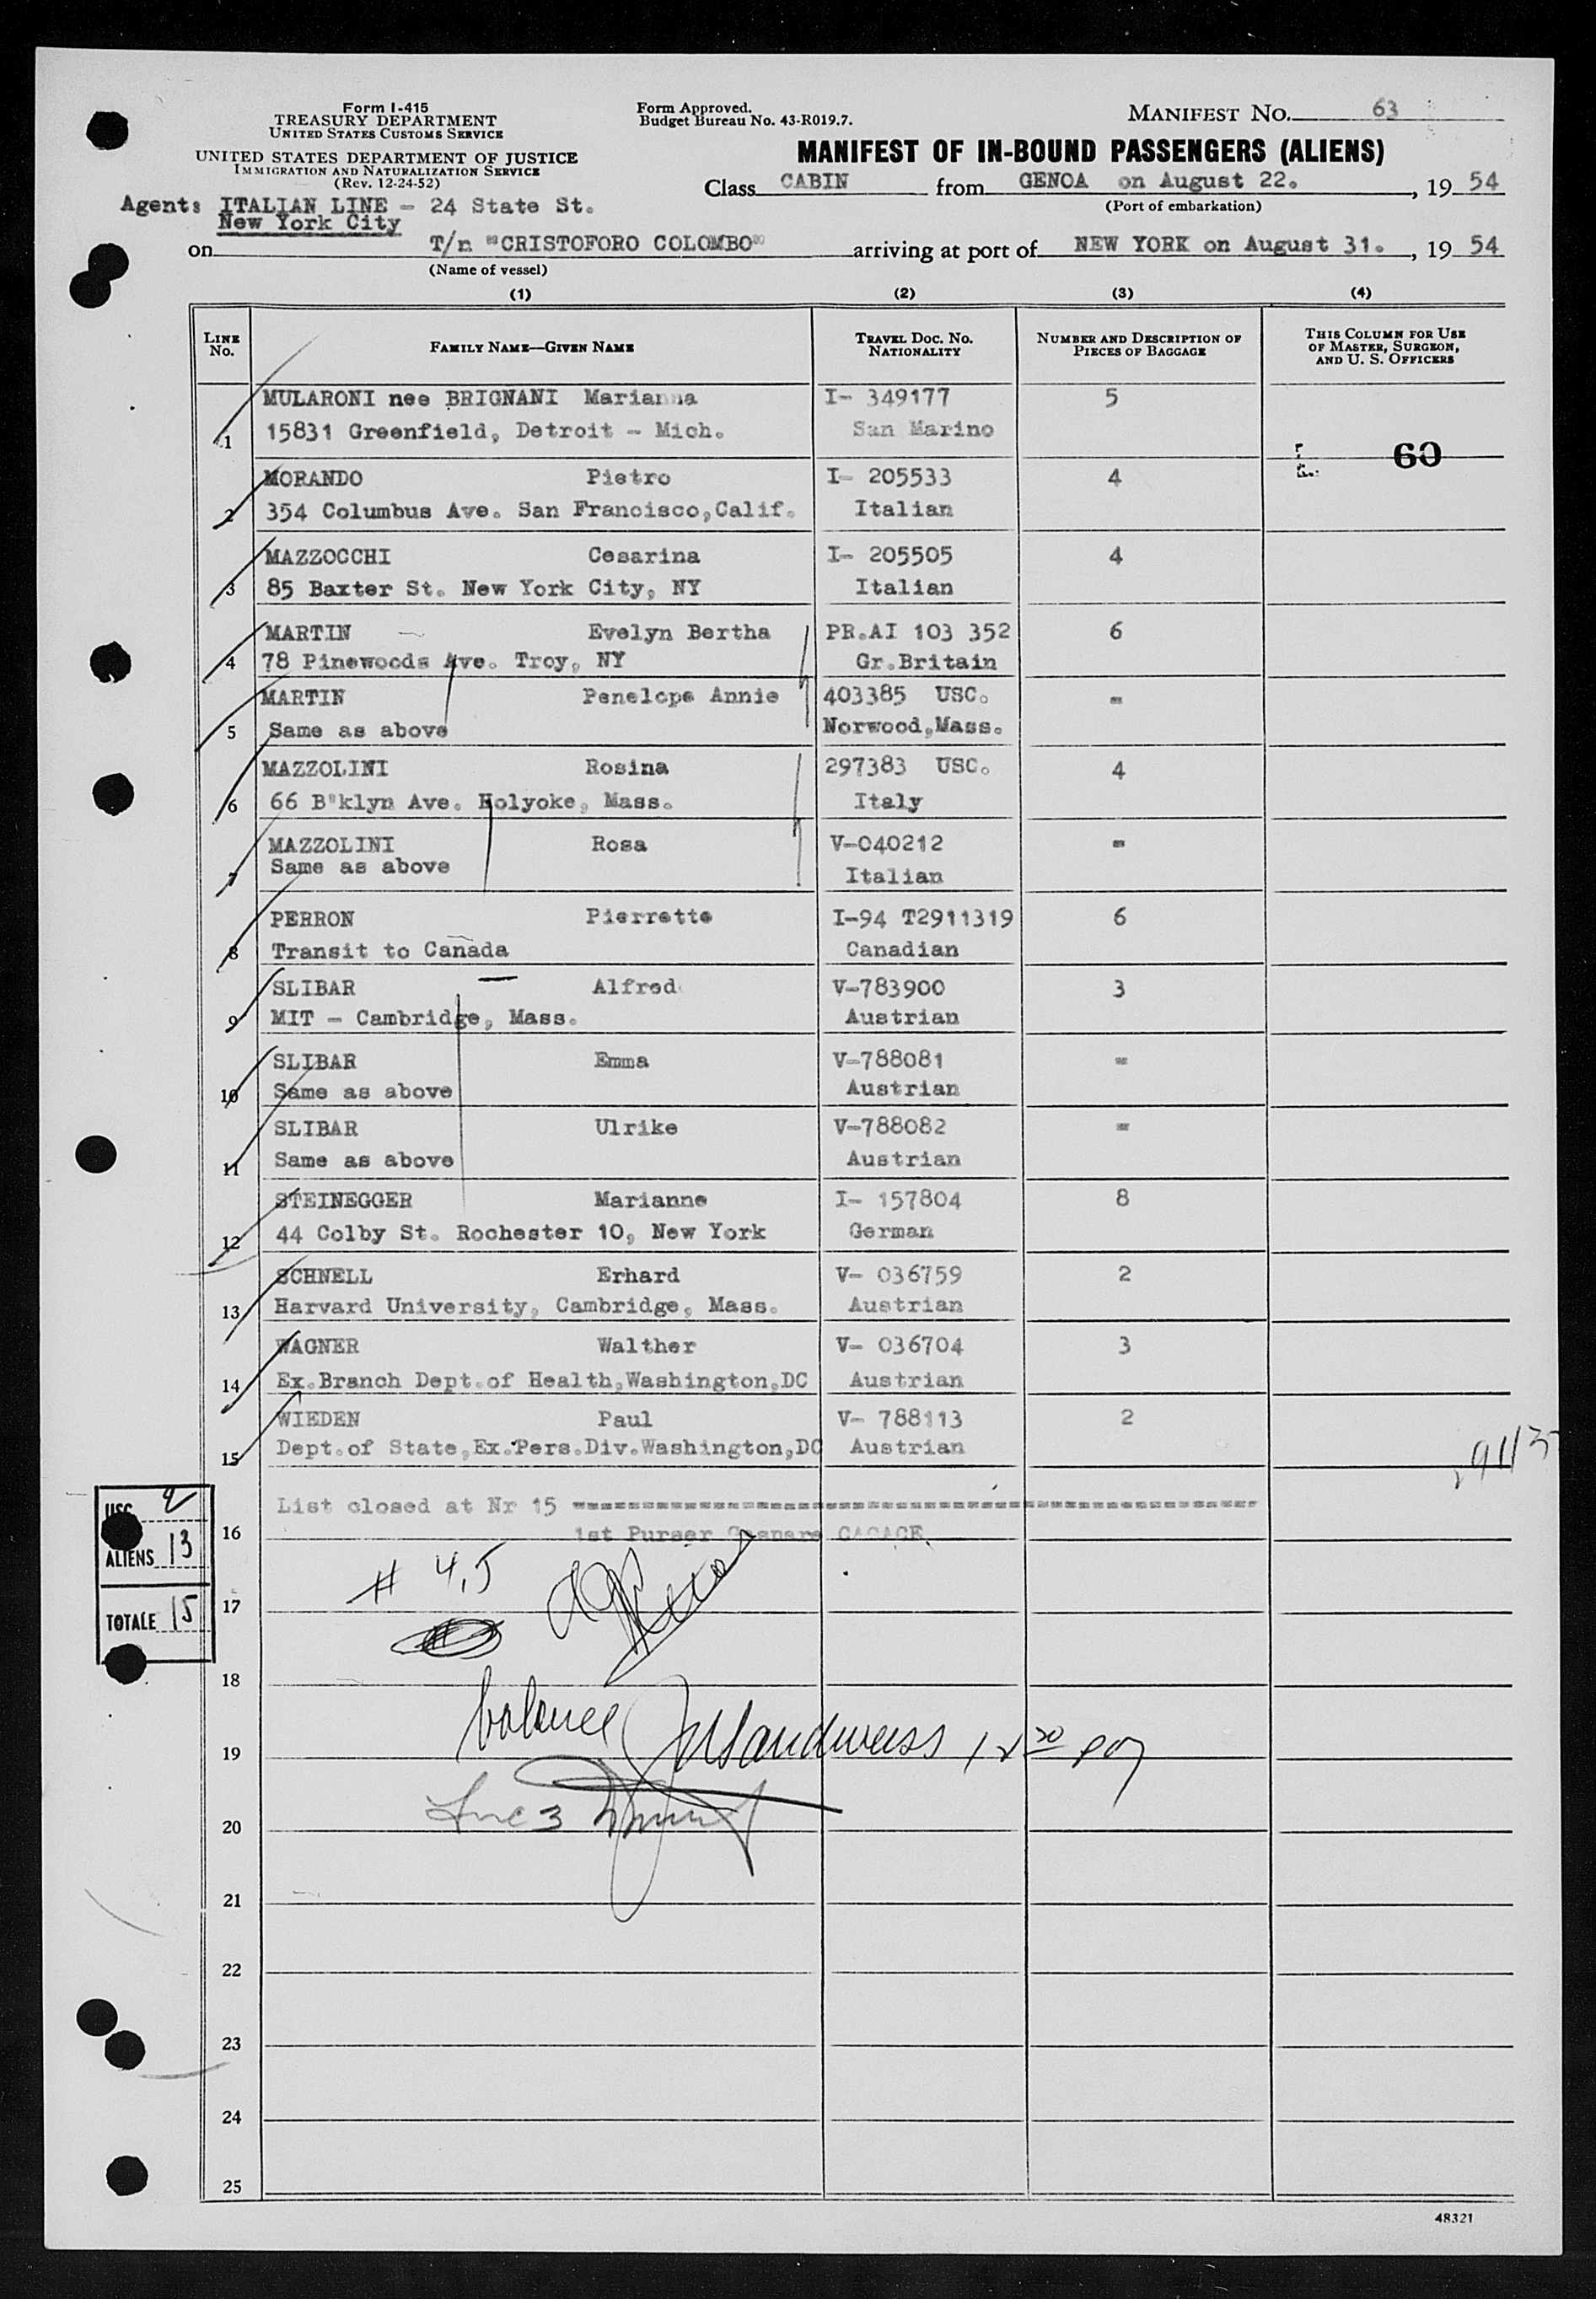 Form I-415
TREASURY DEPARTMENT
UNITED STATES CUSTOMS SERVICE
Form Approved.
Budget Bureau No. 43-R019.7.
MANIFEST NO. 63
UNITED STATES DEPARTMENT OF JUSTICE
IMMIGRATION AND NATURALIZATION SERVICE
(Rev. 12-24-52)
MANIFEST OF IN-BOUND PASSENGERS (ALIENS)
Class CABIN from GENOA on August 22. , 19 54
(Port of embarkation)
Agent: ITALIAN LINE - 24 State St.
New York City
on T/n "CRISTOFORO COLOMBO" arriving at port of NEW YORK on August 31. , 19 54
(Name of vessel)
(1) (2) (3) (4)
LINE No. FAMILY NAME—GIVEN NAME TRAVEL DOC. NO. NATIONALITY NUMBER AND DESCRIPTION OF PIECES OF BAGGAGE THIS COLUMN FOR USE OF MASTER, SURGEON, AND U. S. OFFICERS
MULARONI nee BRIGNANI Marianna I- 349177 5
1 15831 Greenfield, Detroit - Mich. San Marino
60
MORANDO Pietro I- 205533 4
2 354 Columbus Ave. San Francisco,Calif. Italian
MAZZOCCHI Cesarina I- 205505 4
3 85 Baxter St. New York City, NY Italian
MARTIN Evelyn Bertha PR.AI 103 352 6
4 78 Pinewoods Ave. Troy, NY Gr.Britain
MARTIN Penelope Annie 403385 USC. -
5 Same as above Norwood,Mass.
MAZZOLINI Rosina 297383 USC. 4
6 66 B"klyn Ave. Holyoke, Mass. Italy
MAZZOLINI Rosa V-040212 -
7 Same as above Italian
PERRON Pierrette I-94 T2911319 6
8 Transit to Canada Canadian
SLIBAR Alfred V-783900 3
9 MIT - Cambridge, Mass. Austrian
SLIBAR Emma V-788081 -
10 Same as above Austrian
SLIBAR Ulrike V-788082 -
11 Same as above Austrian
STEINEGGER Marianne I- 157804 8
12 44 Colby St. Rochester 10, New York German
SCHNELL Erhard V- 036759 2
13 Harvard University, Cambridge, Mass. Austrian
WAGNER Walther V- 036704 3
14 Ex.Branch Dept.of Health,Washington,DC Austrian
WIEDEN Paul V- 788113 2
15 Dept.of State,Ex.Pers.Div.Washington,DC Austrian
9113
List closed at Nr 15
16 1st Purser Gaspare CACACE
USC 2
ALIENS 13
TOTALE 15
# 4,5
17
18
balance
19
20
21
22
23
24
25
48321